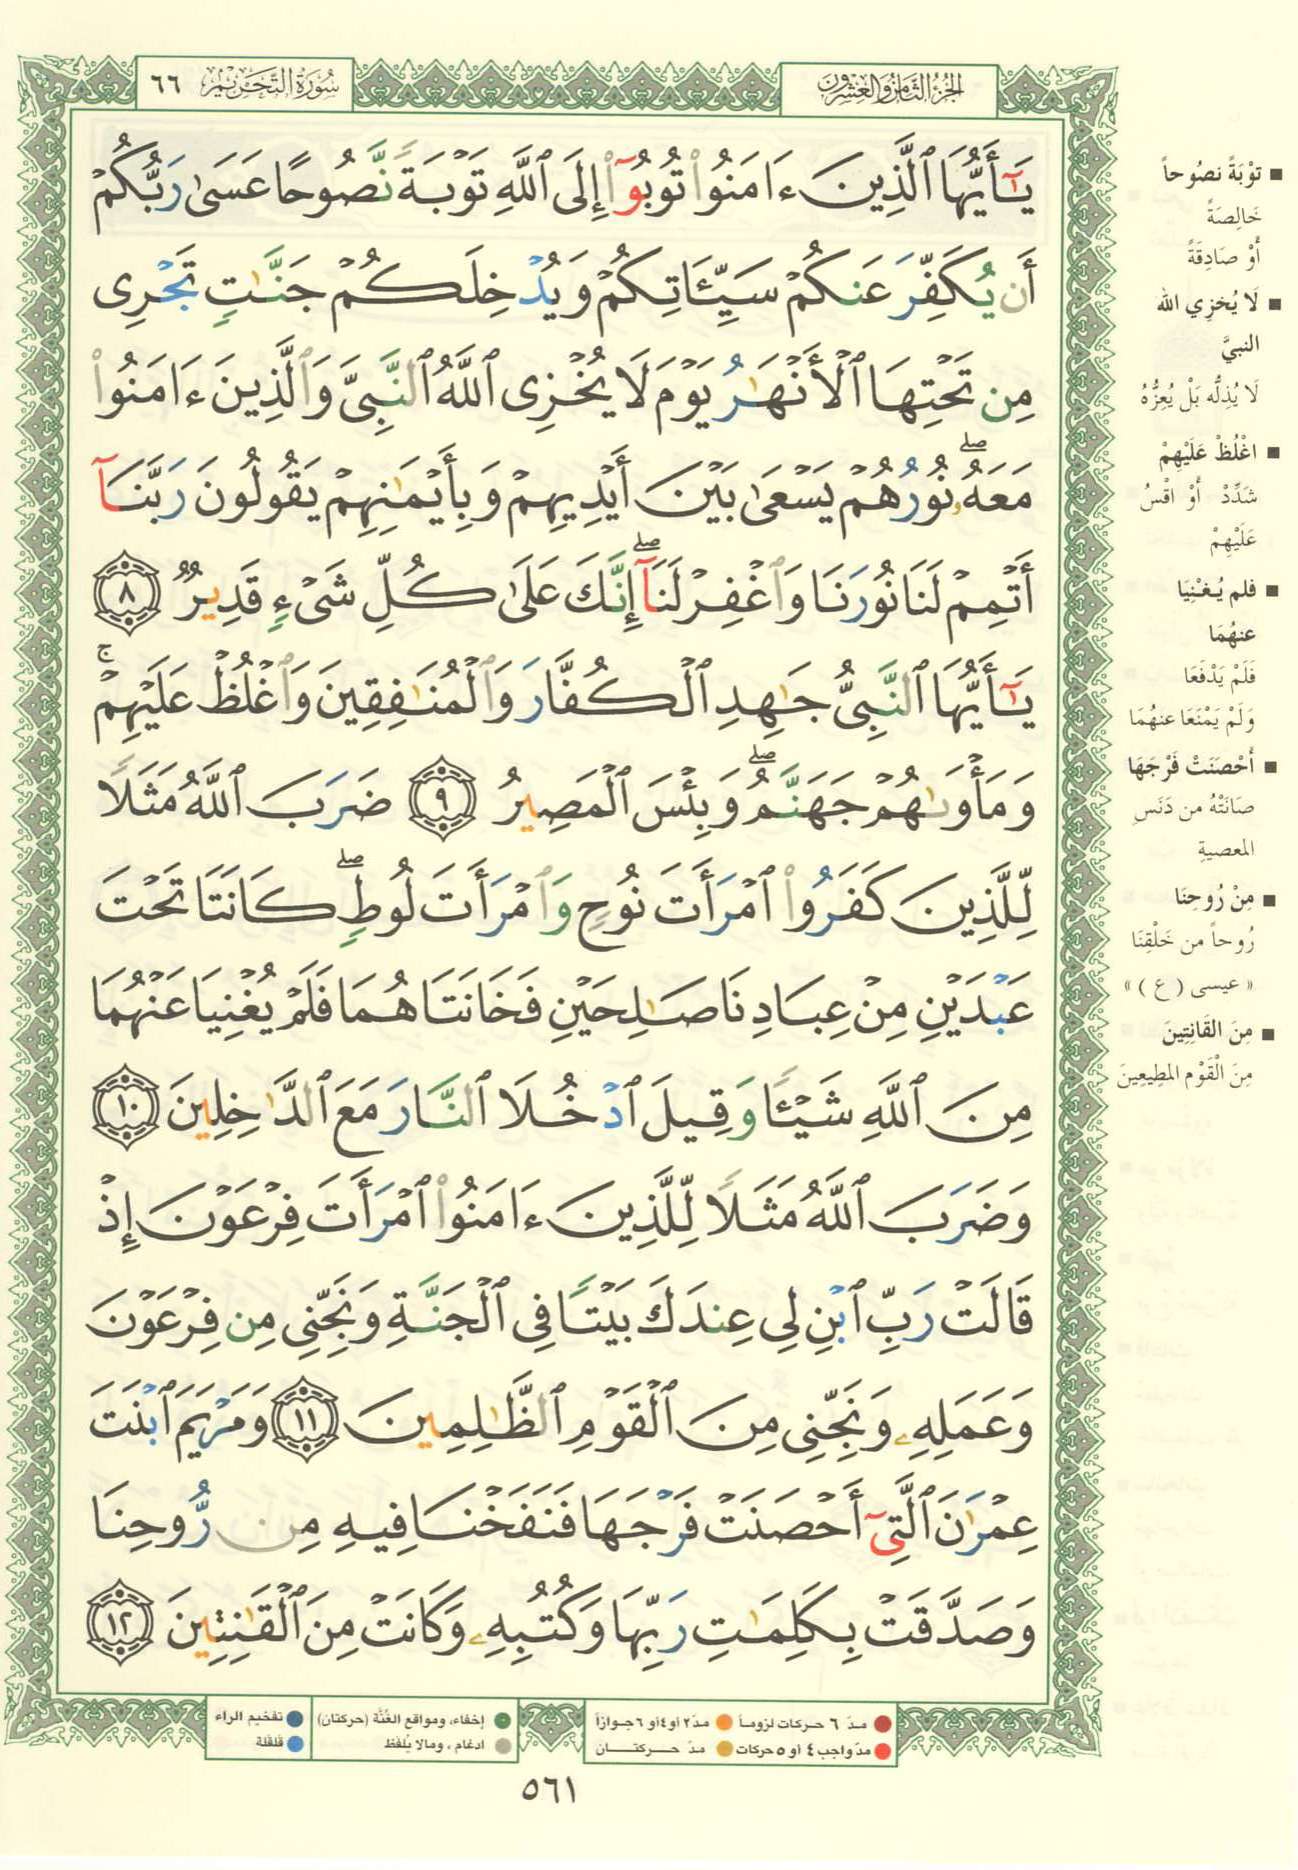 الجزء الثامن والعشرون
سورة التحريم ٦٦
يَـٰٓأَيُّهَا ٱلَّذِينَ ءَامَنُوا۟ تُوبُوٓا۟ إِلَى ٱللَّهِ تَوْبَةً نَّصُوحًا عَسَىٰ رَبُّكُمْ
أَن يُكَفِّرَ عَنكُمْ سَيِّـَٔاتِكُمْ وَيُدْخِلَكُمْ جَنَّـٰتٍ تَجْرِى
مِن تَحْتِهَا ٱلْأَنْهَـٰرُ يَوْمَ لَا يُخْزِى ٱللَّهُ ٱلنَّبِىَّ وَٱلَّذِينَ ءَامَنُوا۟
مَعَهُۥ ۖ نُورُهُمْ يَسْعَىٰ بَيْنَ أَيْدِيهِمْ وَبِأَيْمَـٰنِهِمْ يَقُولُونَ رَبَّنَآ
أَتْمِمْ لَنَا نُورَنَا وَٱغْفِرْ لَنَآ ۖ إِنَّكَ عَلَىٰ كُلِّ شَىْءٍ قَدِيرٌ ٨
يَـٰٓأَيُّهَا ٱلنَّبِىُّ جَـٰهِدِ ٱلْكُفَّارَ وَٱلْمُنَـٰفِقِينَ وَٱغْلُظْ عَلَيْهِمْ ۚ
وَمَأْوَىٰهُمْ جَهَنَّمُ ۖ وَبِئْسَ ٱلْمَصِيرُ ٩ ضَرَبَ ٱللَّهُ مَثَلًا
لِّلَّذِينَ كَفَرُوا۟ ٱمْرَأَتَ نُوحٍ وَٱمْرَأَتَ لُوطٍ ۖ كَانَتَا تَحْتَ
عَبْدَيْنِ مِنْ عِبَادِنَا صَـٰلِحَيْنِ فَخَانَتَاهُمَا فَلَمْ يُغْنِيَا عَنْهُمَا
مِنَ ٱللَّهِ شَيْـًٔا وَقِيلَ ٱدْخُلَا ٱلنَّارَ مَعَ ٱلدَّٰخِلِينَ ١٠
وَضَرَبَ ٱللَّهُ مَثَلًا لِّلَّذِينَ ءَامَنُوا۟ ٱمْرَأَتَ فِرْعَوْنَ إِذْ
قَالَتْ رَبِّ ٱبْنِ لِى عِندَكَ بَيْتًا فِى ٱلْجَنَّةِ وَنَجِّنِى مِن فِرْعَوْنَ
وَعَمَلِهِۦ وَنَجِّنِى مِنَ ٱلْقَوْمِ ٱلظَّـٰلِمِينَ ١١ وَمَرْيَمَ ٱبْنَتَ
عِمْرَٰنَ ٱلَّتِىٓ أَحْصَنَتْ فَرْجَهَا فَنَفَخْنَا فِيهِ مِن رُّوحِنَا
وَصَدَّقَتْ بِكَلِمَـٰتِ رَبِّهَا وَكُتُبِهِۦ وَكَانَتْ مِنَ ٱلْقَـٰنِتِينَ ١٢
■ تَوْبَةً نَصُوحاً
خَالِصَةً
أَوْ صَادِقَةً
■ لَا يُخْزِي الله
النبيَّ
لَا يُذِلُّه بَلْ يُعِزُّهُ
■ اغْلُظْ عَلَيْهِمْ
شَدِّدْ أَوْ اقْسُ
عَلَيْهِمْ
■ فلم يُغْنِيَا
عنهُمَا
فَلَمْ يَدْفَعَا
وَلَمْ يَمْنَعَا عنهُمَا
■ أَحْصَنَتْ فَرْجَهَا
صَانَتْهُ من دَنَسِ
المعصيةِ
■ مِنْ رُوحِنَا
رُوحاً من خَلْقِنَا
« عيسى ( ع ) »
■ مِنَ القَانِتِينَ
مِنَ الْقَوْمِ المطِيعِينَ
مدّ ٦ حركات لزوماً مدّ ٢ أو ٤ أو ٦ جوازاً
مدّ واجب ٤ أو ٥ حركات مدّ حركتان
إخفاء، ومواقع الغُنَّة (حركتان) تفخيم الراء
ادغام ، ومالا يُلفَظ قلقلة
٥٦١